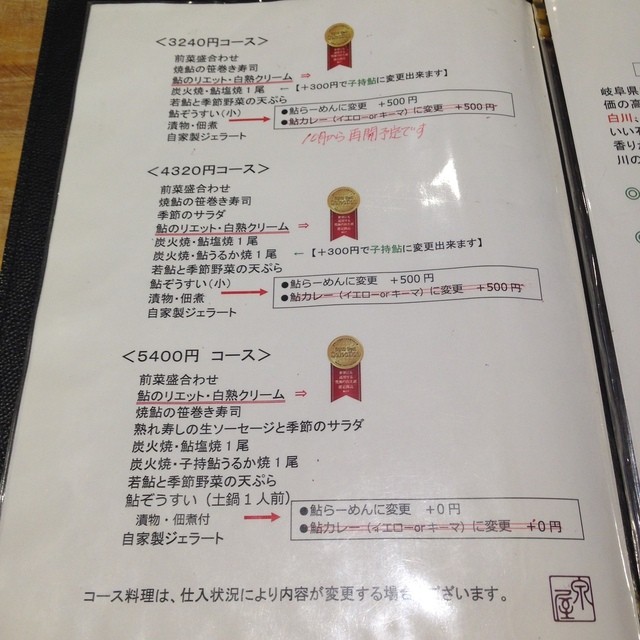 <3240円コース>
前菜盛合わせ
焼鮎の笹巻き寿司
鮎のリエット・白熟クリーム ⇒
炭火焼・鮎塩焼1尾 ←【+300円で子持鮎に変更出来ます】
若鮎と季節野菜の天ぷら
鮎ぞうすい(小)
●鮎らーめんに変更 +500円
●鮎カレー(イエローorキーマ)に変更 +500円
漬物・佃煮
自家製ジェラート
から再開予定です
<4320円コース>
前菜盛合わせ
焼鮎の笹巻き寿司
季節のサラダ
鮎のリエット・白熟クリーム ⇒
炭火焼・鮎塩焼1尾
炭火焼・鮎うるか焼1尾 ←【+300円で子持鮎に変更出来ます】
若鮎と季節野菜の天ぷら
鮎ぞうすい(小)
●鮎らーめんに変更 +500円
●鮎カレー(イエローorキーマ)に変更 +500円
漬物・佃煮
自家製ジェラート
<5400円 コース>
前菜盛合わせ
鮎のリエット・白熟クリーム ⇒
焼鮎の笹巻き寿司
熟れ寿しの生ソーセージと季節のサラダ
炭火焼・鮎塩焼1尾
炭火焼・子持鮎うるか焼1尾
若鮎と季節野菜の天ぷら
鮎ぞうすい(土鍋1人前)
●鮎らーめんに変更 +0円
●鮎カレー(イエローorキーマ)に変更 +0円
漬物・佃煮付
自家製ジェラート
コース料理は、仕入状況により内容が変更する場合 ございます。
泉屋
岐阜県
価の高
白川、
いいね
香りか
川の